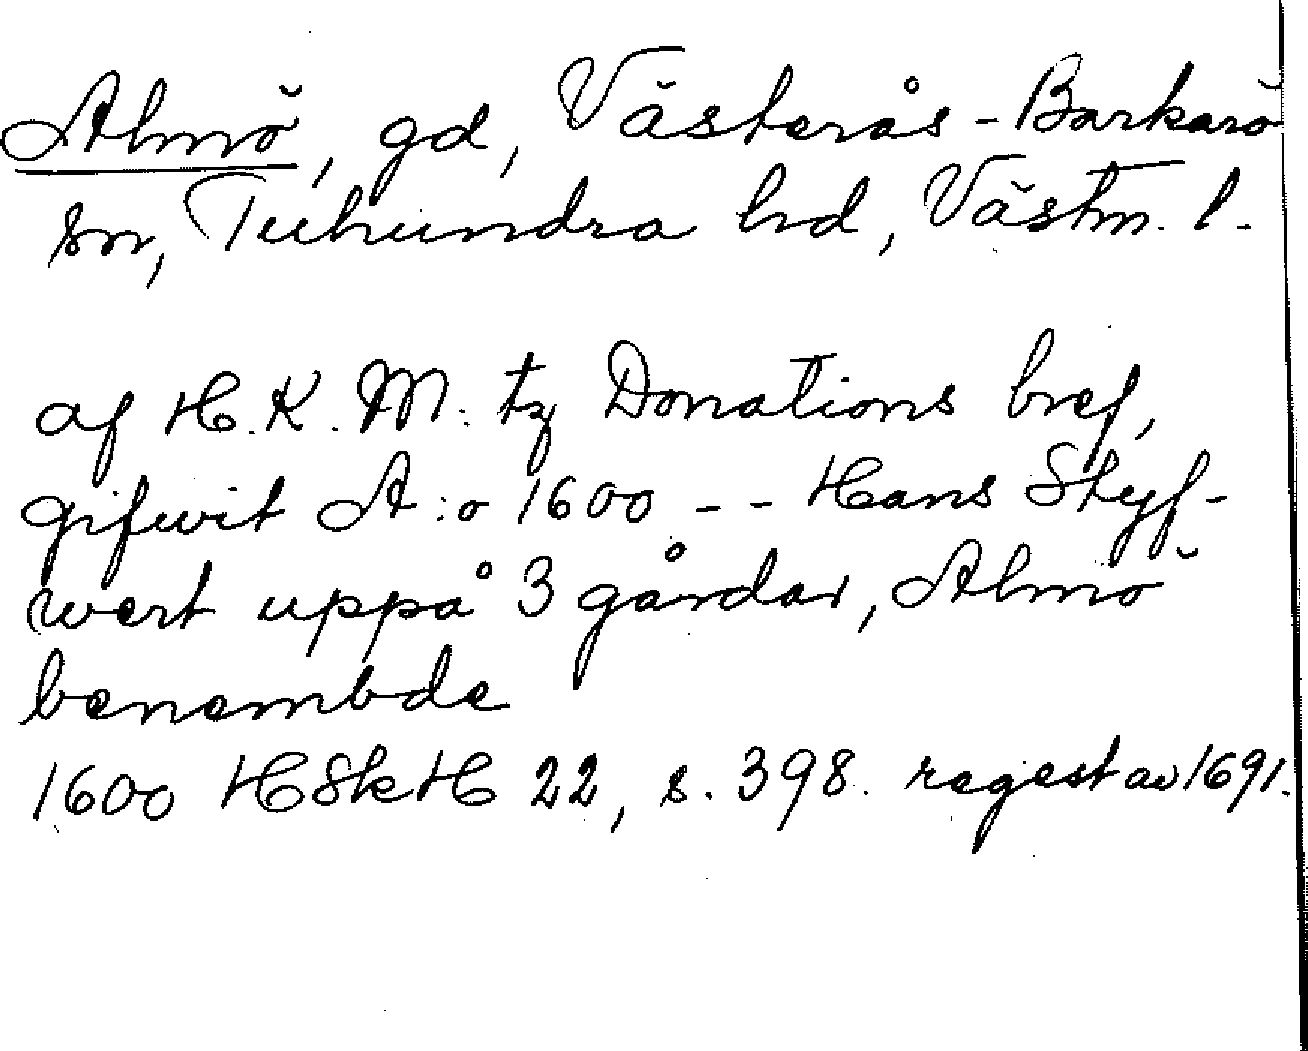 Almö, gd, Västerås-Barkarö
sn, Tuhundra hd, Västm. l.
af H.K.M:tz Donations bref,
gifwit A:o 1600 -- Hans Styf-
wert uppå 3 gårdar, Almö
benembde
1600 HSkH 22, s. 398. regest av 1691.